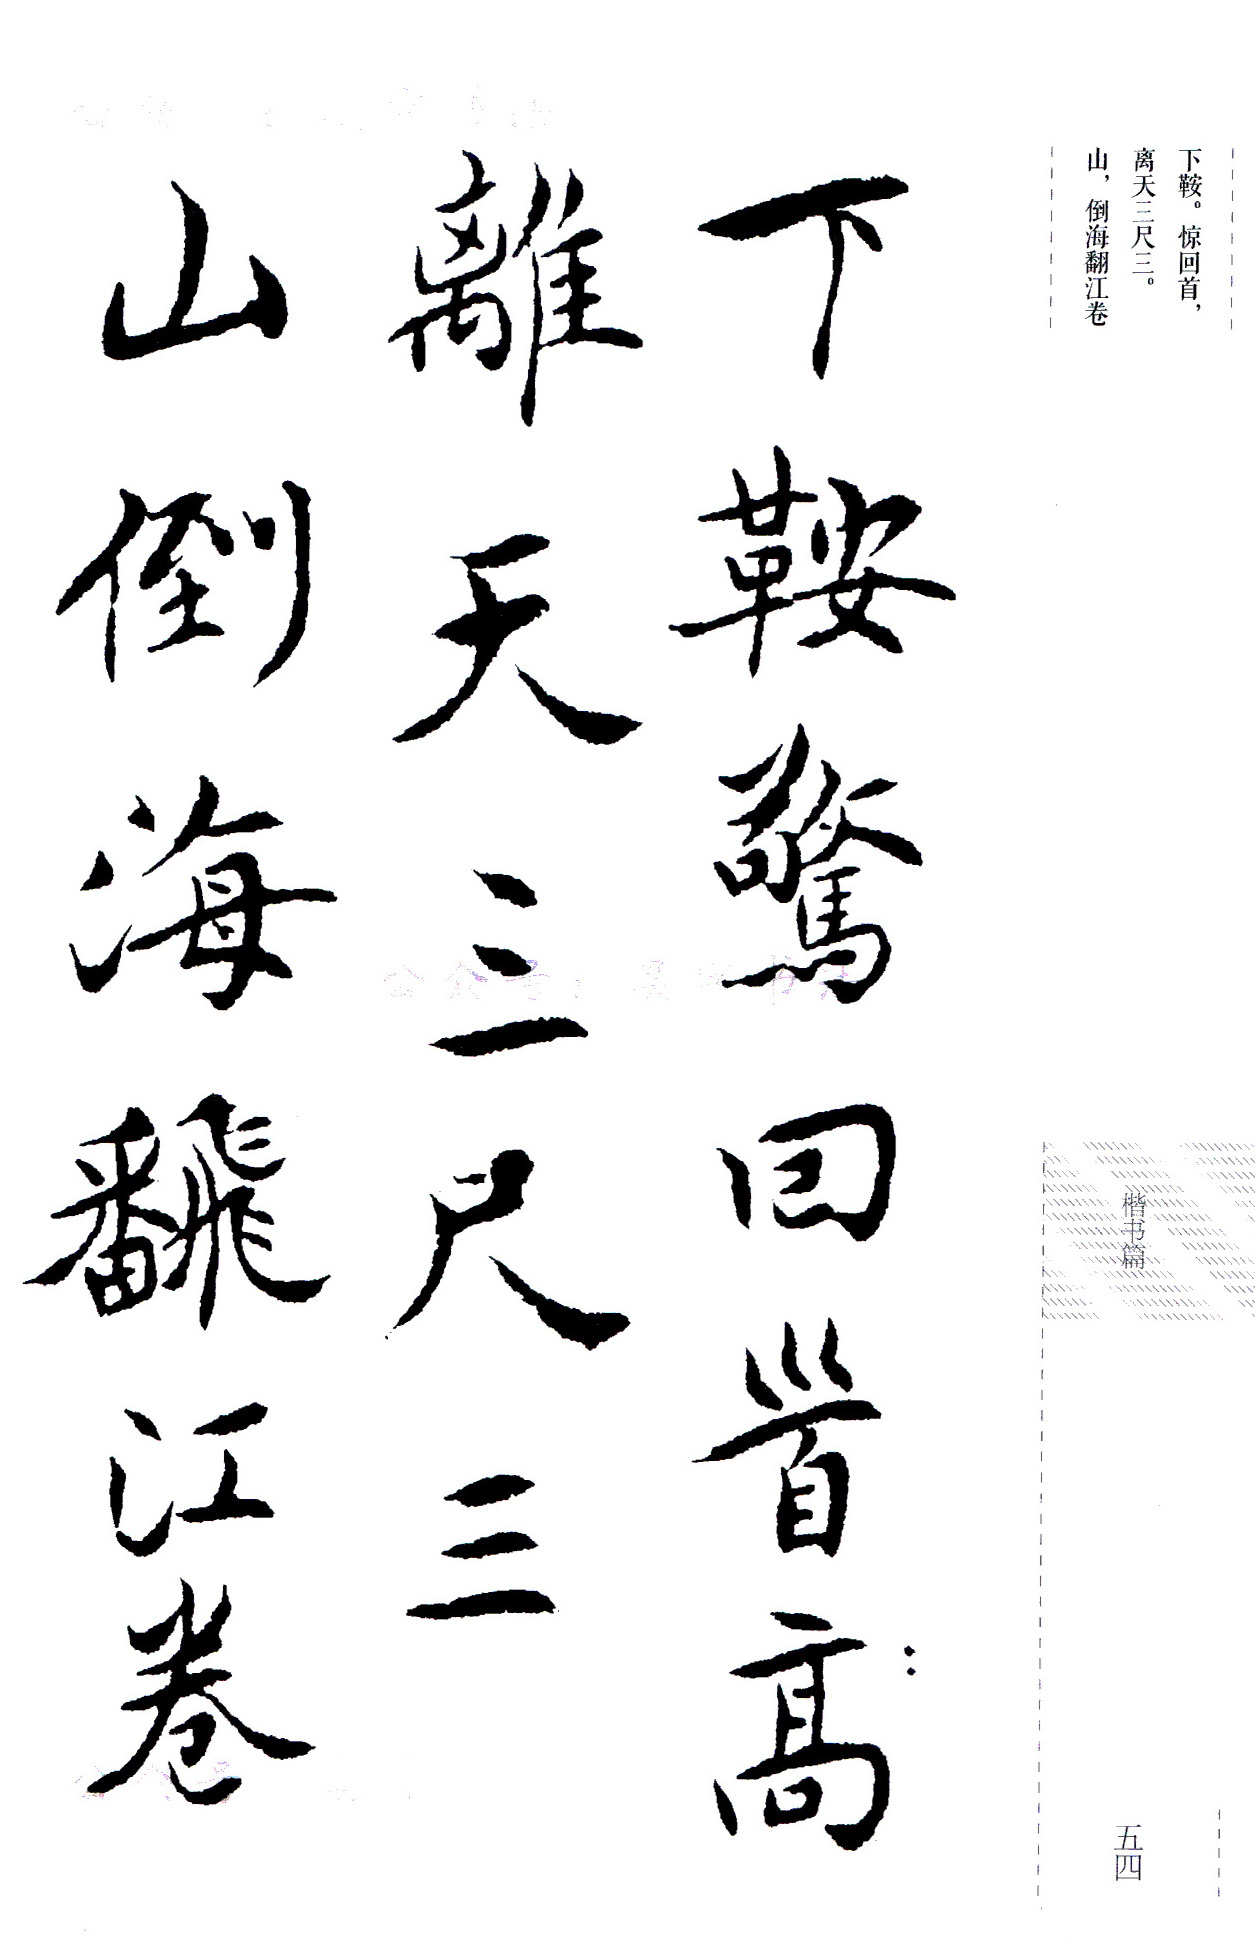 下鞍。惊回首，
离天三尺三。
山，倒海翻江卷
楷书篇
五四
下鞍驚回首高
離天三尺三
山倒海飜江卷